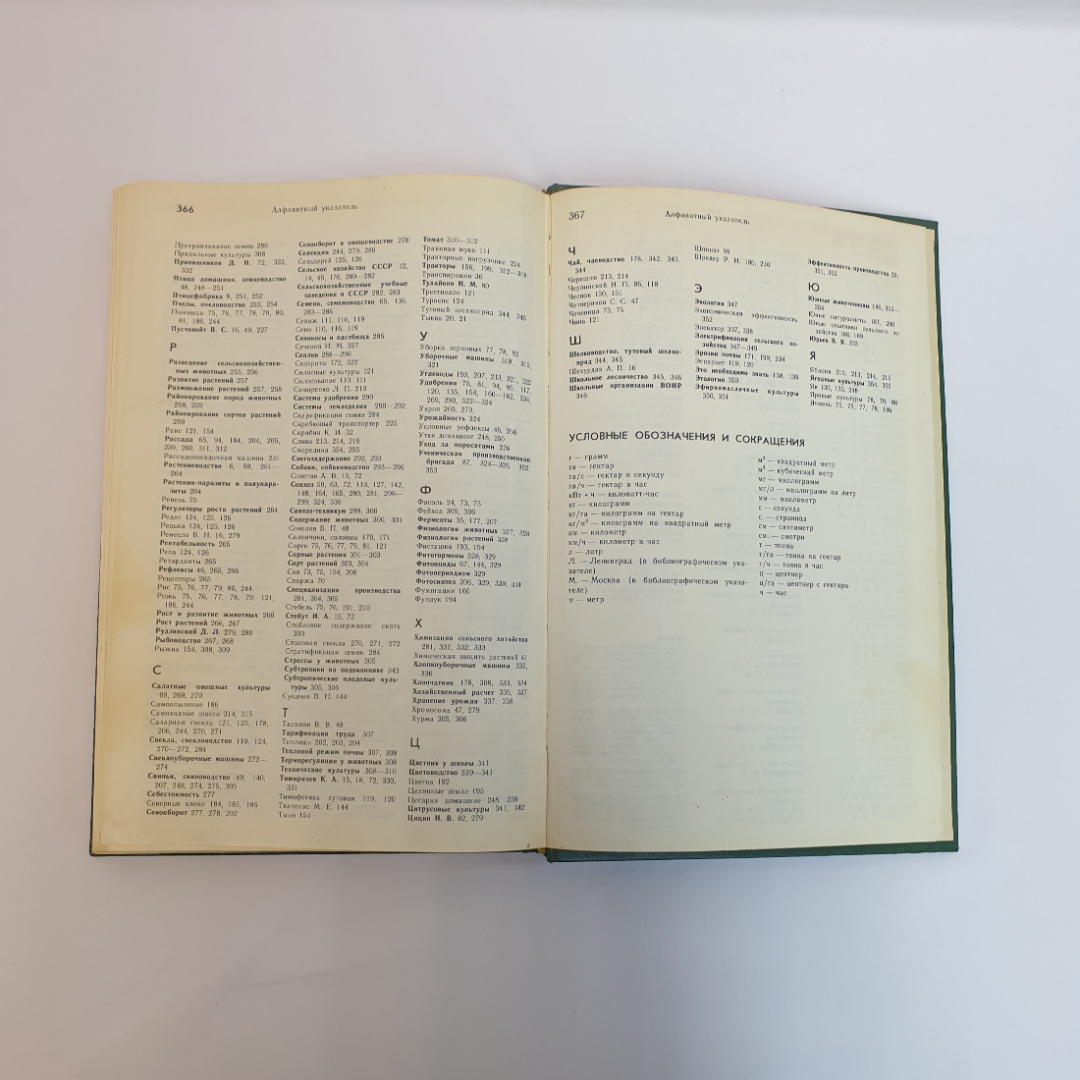 366
Алфавитный указатель
Протравливание семян 285
Прядильные культуры 308
Прянишников Д. Н. 72, 323,
332
Птица домашняя, птицеводство
48, 248—251
Птицефабрика 8, 251, 252
Пчелы, пчеловодство 253, 254
Пшеница 75, 76, 77, 78, 79, 80,
81, 186, 244
Пустовойт В. С. 16, 49, 227
Р
Разведение сельскохозяйствен-
ных животных 255, 256
Развитие растений 257
Размножение растений 257, 258
Районирование пород животных
258, 259
Районирование сортов растений
259
Рапс 121, 154
Рассада 65, 94, 184, 204, 205,
259, 260, 311, 312
Рассадопосадочная машина 231
Растениеводство 6, 59, 261—
264
Растения-паразиты и полупара-
зиты 264
Ревень 70
Регуляторы роста растений 264
Редис 124, 125, 126
Редька 124, 125, 126
Ремесло В. Н. 16, 279
Рентабельность 265
Репа 124, 126
Ретарданты 265
Рефлексы 46, 265, 266
Рецепторы 265
Рис 75, 76, 77, 79, 80, 244
Рожь 75, 76, 77, 78, 79, 121,
186, 244
Рост и развитие животных 266
Рост растений 266, 267
Рудзинский Д. Л. 279, 280
Рыбоводство 267, 268
Рыжик 154, 308, 309
С
Салатные овощные культуры
69, 269, 270
Самоопыление 186
Самоходные шасси 314, 315
Сахарная свекла 121, 125, 178,
206, 244, 270, 271
Свекла, свекловодство 119, 124,
270—272, 284
Свеклоуборочные машины 272—
274
Свиньи, свиноводство 49, 140,
207, 248, 274, 275, 305
Себестоимость 277
Северные олени 184, 185, 186
Севооборот 277, 278, 292
Севооборот в овощеводстве 278
Селекция 244, 279, 280
Сельдерей 125, 126
Сельское хозяйство СССР 12,
14, 45, 176, 280—282
Сельскохозяйственные учебные
заведения в СССР 282, 283
Семена, семеноводство 65, 136,
283—286
Сенаж 111, 116, 119
Сено 110, 116, 119
Сенокосы и пастбища 286
Сеченов И. М. 327
Сеялки 288—290
Сидераты 172, 322
Силосные культуры 121
Силосование 110, 111
Симиренко Л. П. 213
Система удобрения 290
Системы земледелия 290—292
Скарификация семян 284
Скребковый транспортер 225
Скрябин К. И. 32
Слива 213, 214, 219
Смородина 354, 355
Снегозадержание 292, 293
Собаки, собаководство 293—296
Советов А. В. 15, 72
Совхоз 59, 63, 72, 113, 127, 142,
149, 164, 165, 280, 281, 296—
299, 324, 336
Совхоз-техникум 299, 300
Содержание животных 300, 301
Соколов Б. П. 48
Солончаки, солонцы 170, 171
Сорго 75, 76, 77, 79, 81, 121
Сорные растения 301—303
Сорт растений 303, 304
Соя 73, 75, 154, 206
Спаржа 70
Специализация производства
281, 304, 305
Стебель 75, 76, 191, 210
Стебут И. А. 15, 72
Стойловое содержание скота
300
Столовая свекла 270, 271, 272
Стратификация семян 284
Стрессы у животных 305
Субтропики на подоконнике 343
Субтропические плодовые куль-
туры 305, 306
Сукачев В. Н. 144
Т
Таланов В. В. 48
Тарификация труда 307
Теплицы 202, 203, 204
Тепловой режим почвы 307, 308
Терморегуляция у животных 308
Технические культуры 308—310
Тимирязев К. А. 15, 18, 72, 330,
331
Тимофеевка луговая 119, 120
Ткаченко М. Е. 144
Тмин 154
Томат 310—312
Травяная мука 111
Тракторные погрузчики 224
Тракторы 156, 199, 312—316
Транспирация 36
Тритикале 121
Турнепс 124
Тулайков Н. М. 80
Тутовый шелкопряд 344, 345
Тыква 20, 21
У
Уборка зерновых 77, 78, 82
Уборочные машины 318, 319,
321
Углеводы 193, 207, 213, 321, 322
Удобрения 75, 81, 94, 95, 117,
120, 135, 154, 160—162, 234,
269, 290, 322—324
Укроп 269, 270
Урожайность 324
Условные рефлексы 46, 266
Утки домашние 248, 250
Уход за поросятами 276
Ученическая производственная
бригада 87, 324—326, 352,
353
Ф
Фасоль 24, 73, 75
Фейхоа 305, 306
Ферменты 35, 177, 207
Физиология животных 327, 328
Физиология растений 328
Фисташка 193, 194
Фитогормоны 328, 329
Фитонциды 67, 144, 329
Фотопериодизм 329
Фотосинтез 206, 329, 330, 331
Фумигация 160
Фундук 194
Х
Химизация сельского хозяйства
281, 331, 332, 333
Химическая защита растений 41
Хлопкоуборочные машины 335,
336
Хлопчатник 178, 308, 333, 334
Хозяйственный расчет 336, 337
Хранение урожая 337, 338
Хромосома 47, 279
Хурма 305, 306
Ц
Цветник у школы 341
Цветоводство 339—341
Цветок 192
Целинные земли 195
Цесарки домашние 248, 250
Цитрусовые культуры 341, 342
Цицин Н. В. 82, 279
367
Алфавитный указатель
Ч
Чай, чаеводство 178, 342, 343,
344
Черешня 213, 214
Чернинский Н. П. 86, 118
Чеснок 150, 151
Четвериков С. С. 47
Чечевица 73, 75
Чина 121
Ш
Шелководство, тутовый шелко-
пряд 344, 345
Шехурдин А. П. 16
Школьное лесничество 345, 346
Школьные организации ВОИР
346
Шпинат 69
Шредер Р. И. 180, 216
Э
Экология 347
Экономическая эффективность
352
Элеватор 337, 338
Электрификация сельского хо-
зяйства 347—349
Эрозия почвы 171, 199, 234
Эспарцет 119, 120
Это необходимо знать 138, 139
Этология 350
Эфирномасличные культуры
350, 351
Эффективность производства 28,
351, 352
Ю
Южные животноводы
354
Юные натуралисты 161, 200
Юные опытники сельского хо-
зяйства 166, 169
Юрьев В. Я. 303
Я
Яблоня 213, 214, 215
Ягодные культуры 354, 355
Як 130, 133, 248
Яровые культуры 78, 79, 80
Ячмень 75, 76, 77, 78, 186
УСЛОВНЫЕ ОБОЗНАЧЕНИЯ И СОКРАЩЕНИЯ
г — грамм
га — гектар
га/с — гектар в секунду
га/ч — гектар в час
кВт • ч — киловатт-час
кг — килограмм
кг/га — килограмм на гектар
кг/м² — килограмм на квадратный метр
км — километр
км/ч — километр в час
л — литр
Л. — Ленинград (в библиографическом ука-
зателе)
М. — Москва (в библиографическом указа-
теле)
м — метр
м² — квадратный метр
м³ — кубический метр
мг — миллиграмм
мг/л — миллиграмм на литр
мм — миллиметр
с — секунда
с. — страница
см — сантиметр
см. — смотри
т — тонна
т/га — тонна на гектар
т/ч — тонна в час
ц — центнер
ц/га — центнер с гектара
ч — час